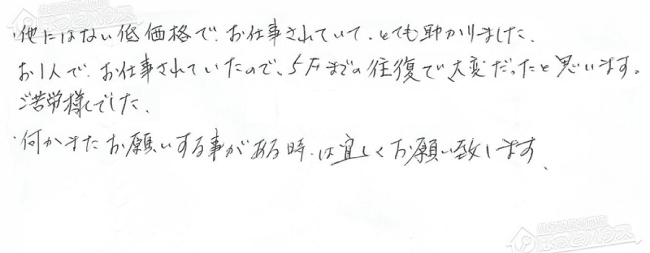 ・他にはない低価格で、お仕事されていて、とても助かりました、
お1人で、お仕事されていたので、5Fまでの往復で大変だったと思います。
ご苦労様でした、
・何かまたお願いする事がある時は宜しくお願い致します、